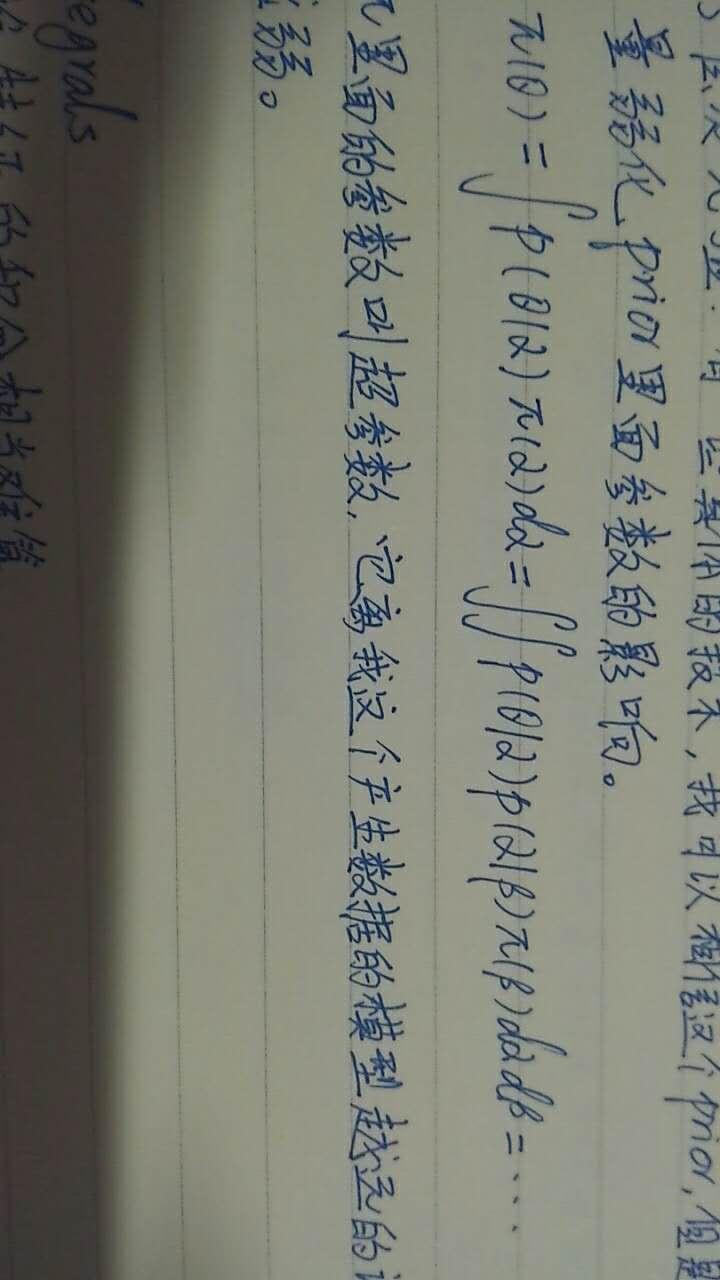 层次先验：有一些具体的技术，我可以构造这个prior，但是
量弱化prior里面参数的影响。
π(θ) = ∫p(θ|α)π(α)dα = ∫∫p(θ|α)p(α|β)π(β)dαdβ = ⋯
π里面的参数叫超参数，它离我这个产生数据的模型越远的
弱。
egrals
的积分相当难算